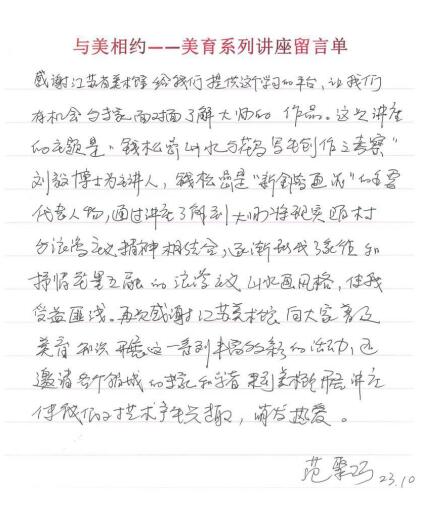 与美相约——美育系列讲座留言单
感谢江苏省美术馆给我们提供这个学习的平台,让我们
有机会与专家面对面了解大师的作品。这次讲座
的主题是“钱松喦山水与花鸟写生创作之考察”
刘毅博士为主讲人,钱松喦是“新金陵画派”的主要
代表人物,通过讲座了解到大师将现实题材
与浪漫主义精神相结合,逐渐形成了豪放和
抒情共呈互融的浪漫主义山水画风格,使我
受益匪浅。再次感谢江苏美术馆向大家普及
美育知识开展这一系列丰富多彩的活动,还
邀请各个领域的专家和学者来到美术馆开讲座
使我们对艺术产生兴趣,萌发热爱。
范 23.10